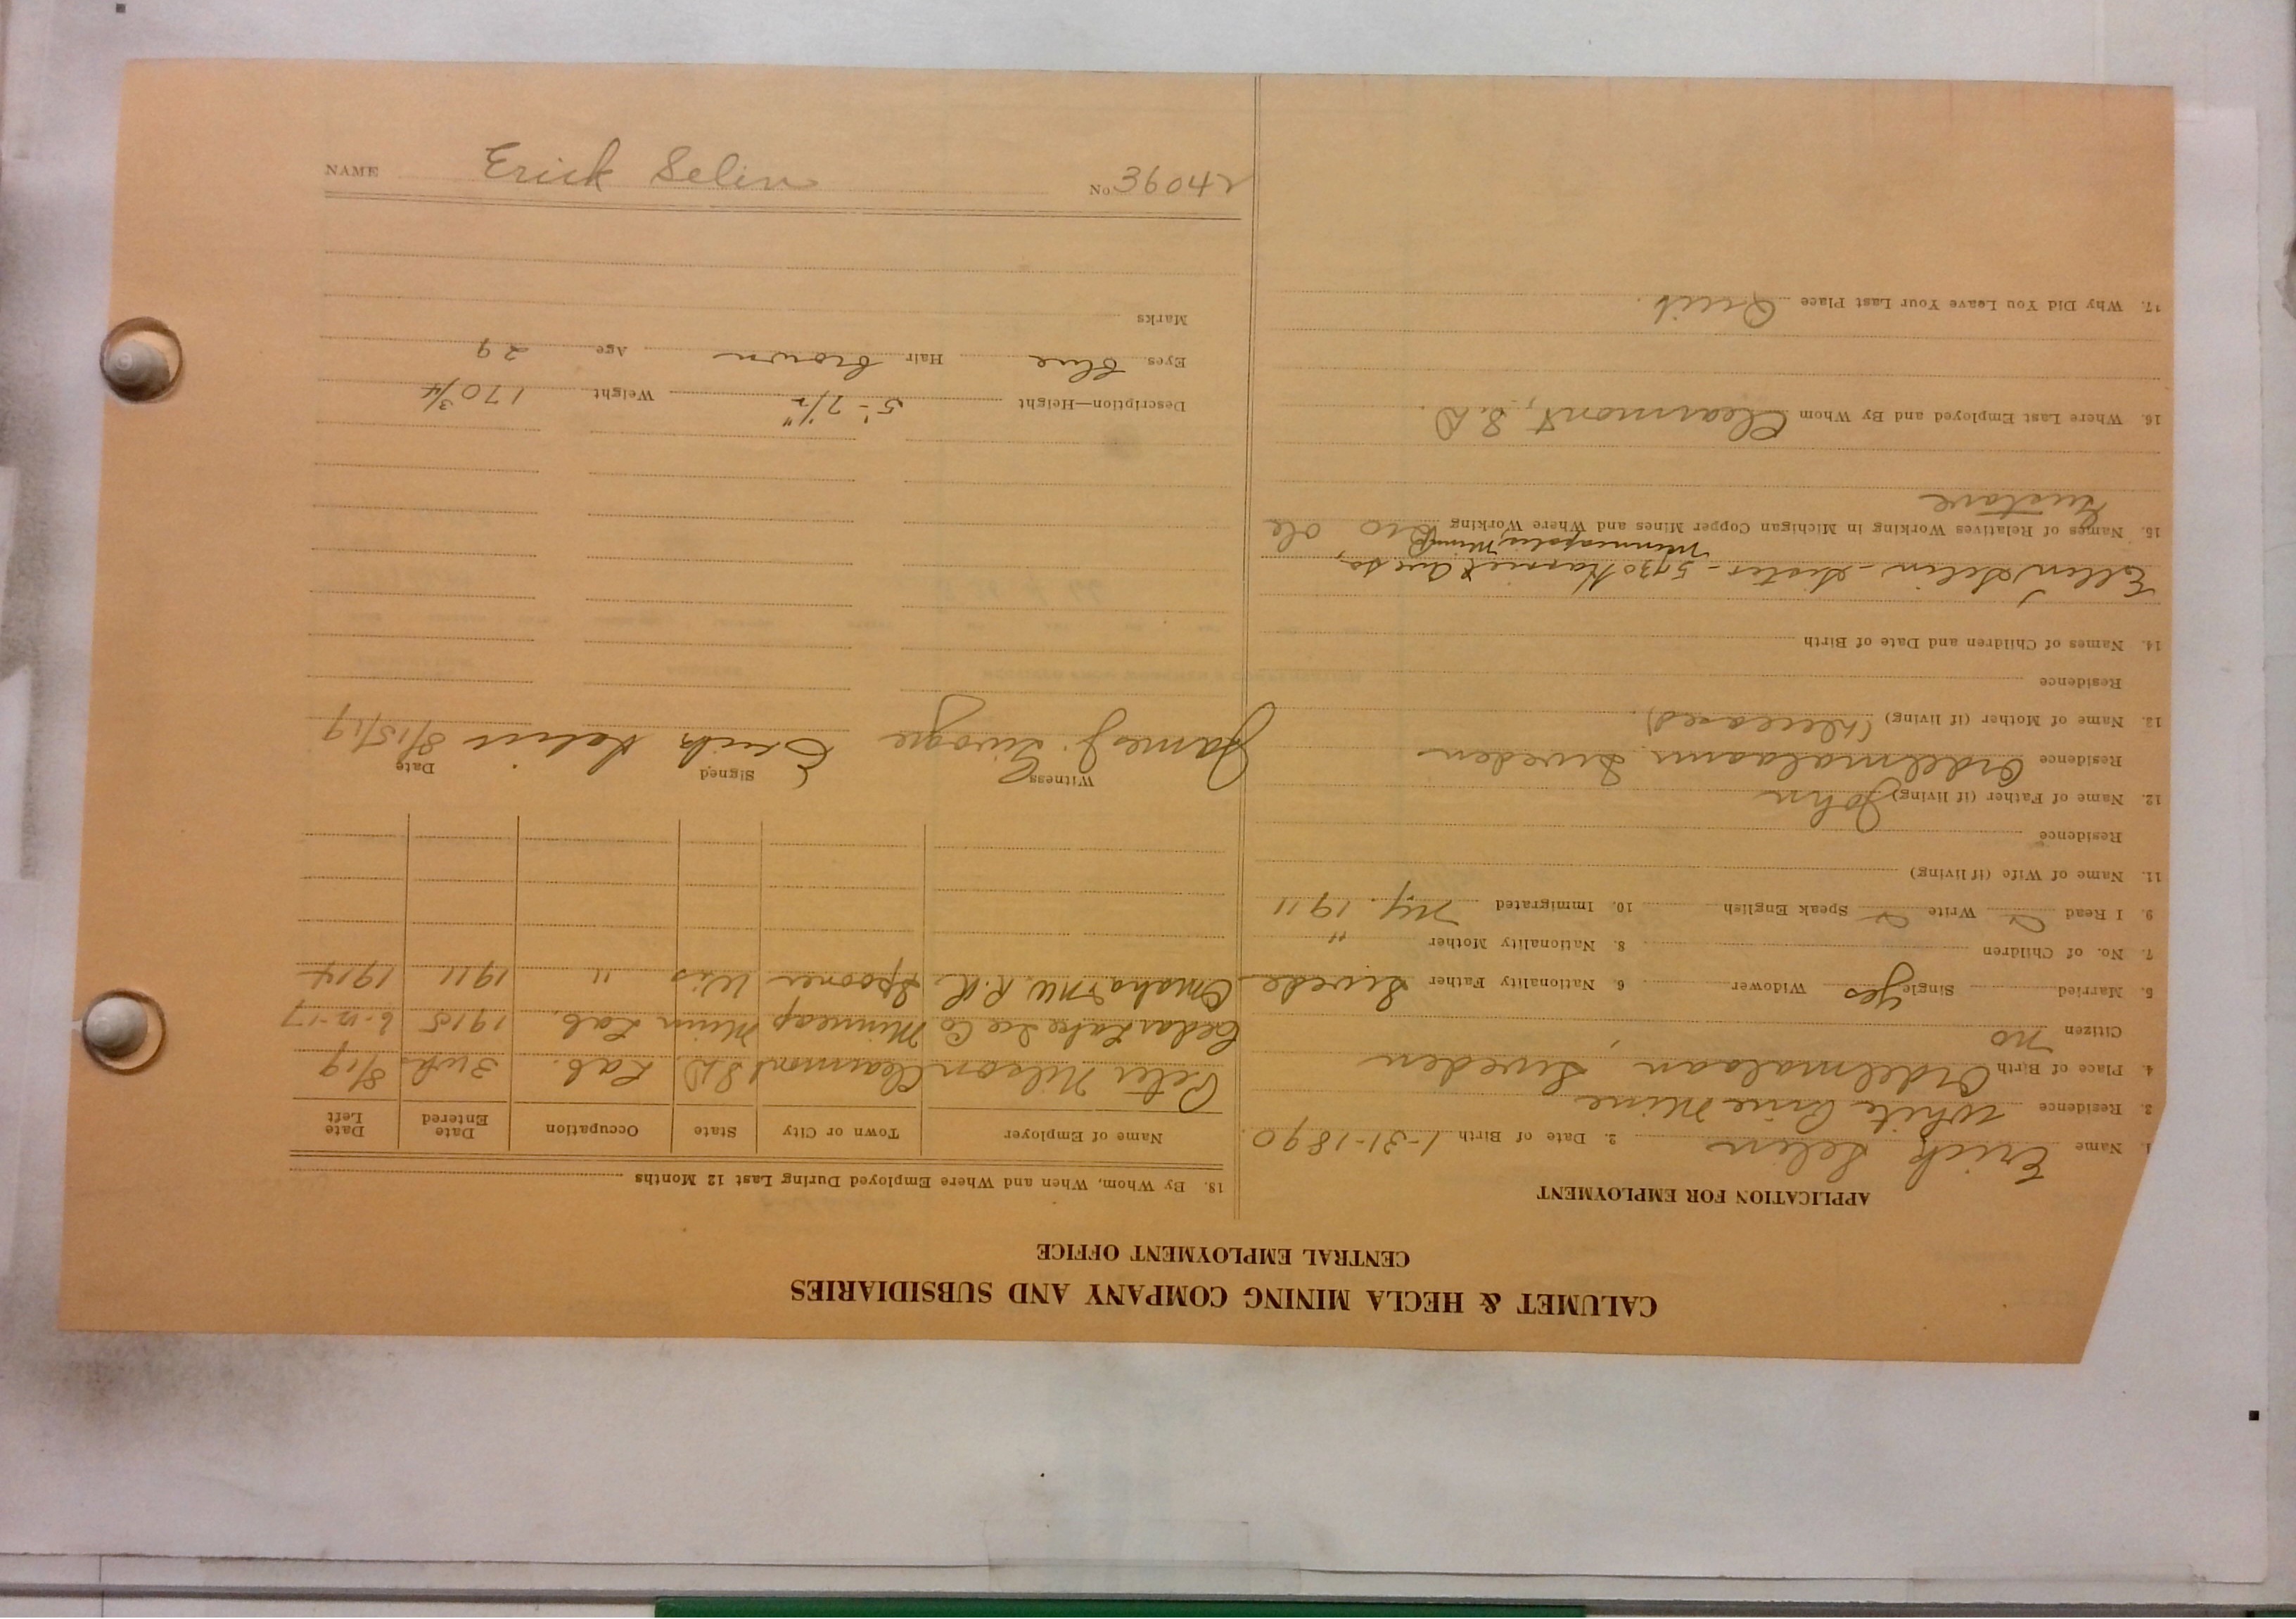 CALUMET & HECLA MINING COMPANY AND SUBSIDIARIES
CENTRAL EMPLOYMENT OFFICE
APPLICATION FOR EMPLOYMENT
1. Name Erick Selin 2. Date of Birth 1-31-1890.
3. Residence White Pine Mine
4. Place of Birth Ordelmalaan, Sweden
Citizen no
5. Married Single yes Widower 6. Nationality Father Swede
7. No. of Children 8. Nationality Mother "
9. I Read Write Speak English 10. Immigrated N.Y. 1911
11. Name of Wife (if living)
Residence
12. Name of Father (if living) John
Residence Ordelmalaann Sweden
13. Name of Mother (if living) (Deceased).
Residence
14. Names of Children and Date of Birth
Ellen Selin - Sister - 5730 Harriet Ave So,
Minneapolis, Minn
15. Names of Relatives Working in Michigan Copper Mines and Where Working Bro Ole
Gustave
16. Where Last Employed and By Whom Clearmont, S.D.
17. Why Did You Leave Your Last Place Quit.
18. By Whom, When and Where Employed During Last 12 Months
Name of Employer Town or City State Occupation Date Entered Date Left
Peter Nilson Clearmont S.D. Lab. 3 wks 8/19
Cedar Lake Ice Co Minneap Minn Lab. 1915 6-12-17
Omaha & NW. R.R. Spooner Wis " 1911 1914
Witness Signed Date
James J. Erick Selin 8/15/19
Description—Height 5'-7 1/2" Weight 170 3/4
Eyes blue Hair brown Age 29
Marks
NAME Erick Selin No 36042